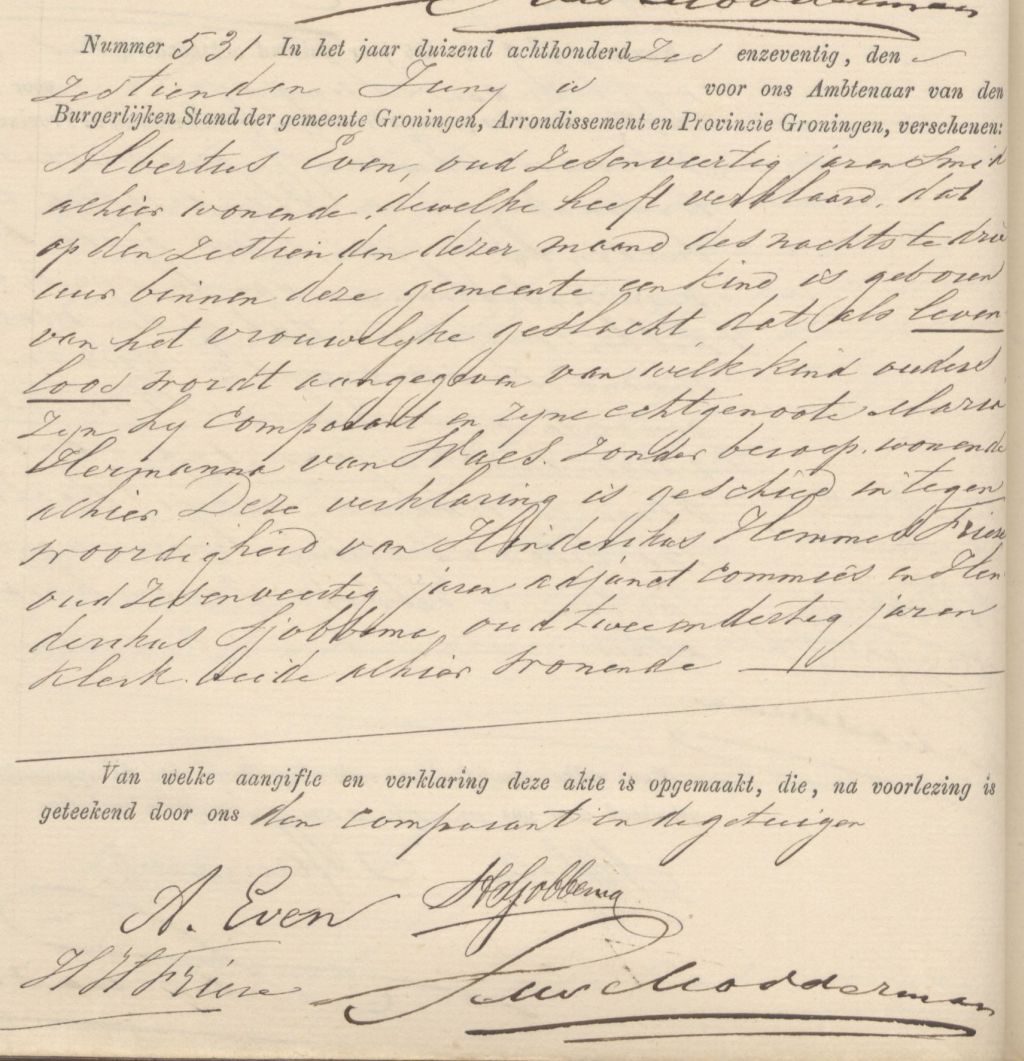 Nummer 531 In het jaar duizend achthonderd Zes enzeventig, den
Zestienden Juny is voor ons Ambtenaar van den
Burgerlijken Stand der gemeente Groningen, Arrondissement en Provincie Groningen, verschenen:
Albertus Even, oud Zesenveertig jaren Smid
alhier wonende, dewelke heeft verklaard, dat
op den Zestienden dezer maand des nachts te drie
uur binnen deze gemeente een kind is geboren
van het vrouwelyke geslacht dat als leven
loos wordt aangegeven van welk kind ouders
zyn hy Comparant en zyne echtgenoote Maria
Hermanna van Waes. Zonder beroep. wonende
alhier Deze verklaring is geschied in tegen
woordigheid van Hinderikus Hemmes Friese
oud Zesenveertig jaren adjunct commies en Hen
derikus Sjobbema, oud tweeendertig jaren
klerk beide alhier wonende
Van welke aangifte en verklaring deze akte is opgemaakt, die, na voorlezing is
geteekend door ons den comparant en de getuigen
A. Even HSjobbema
HH Friese
Modderman